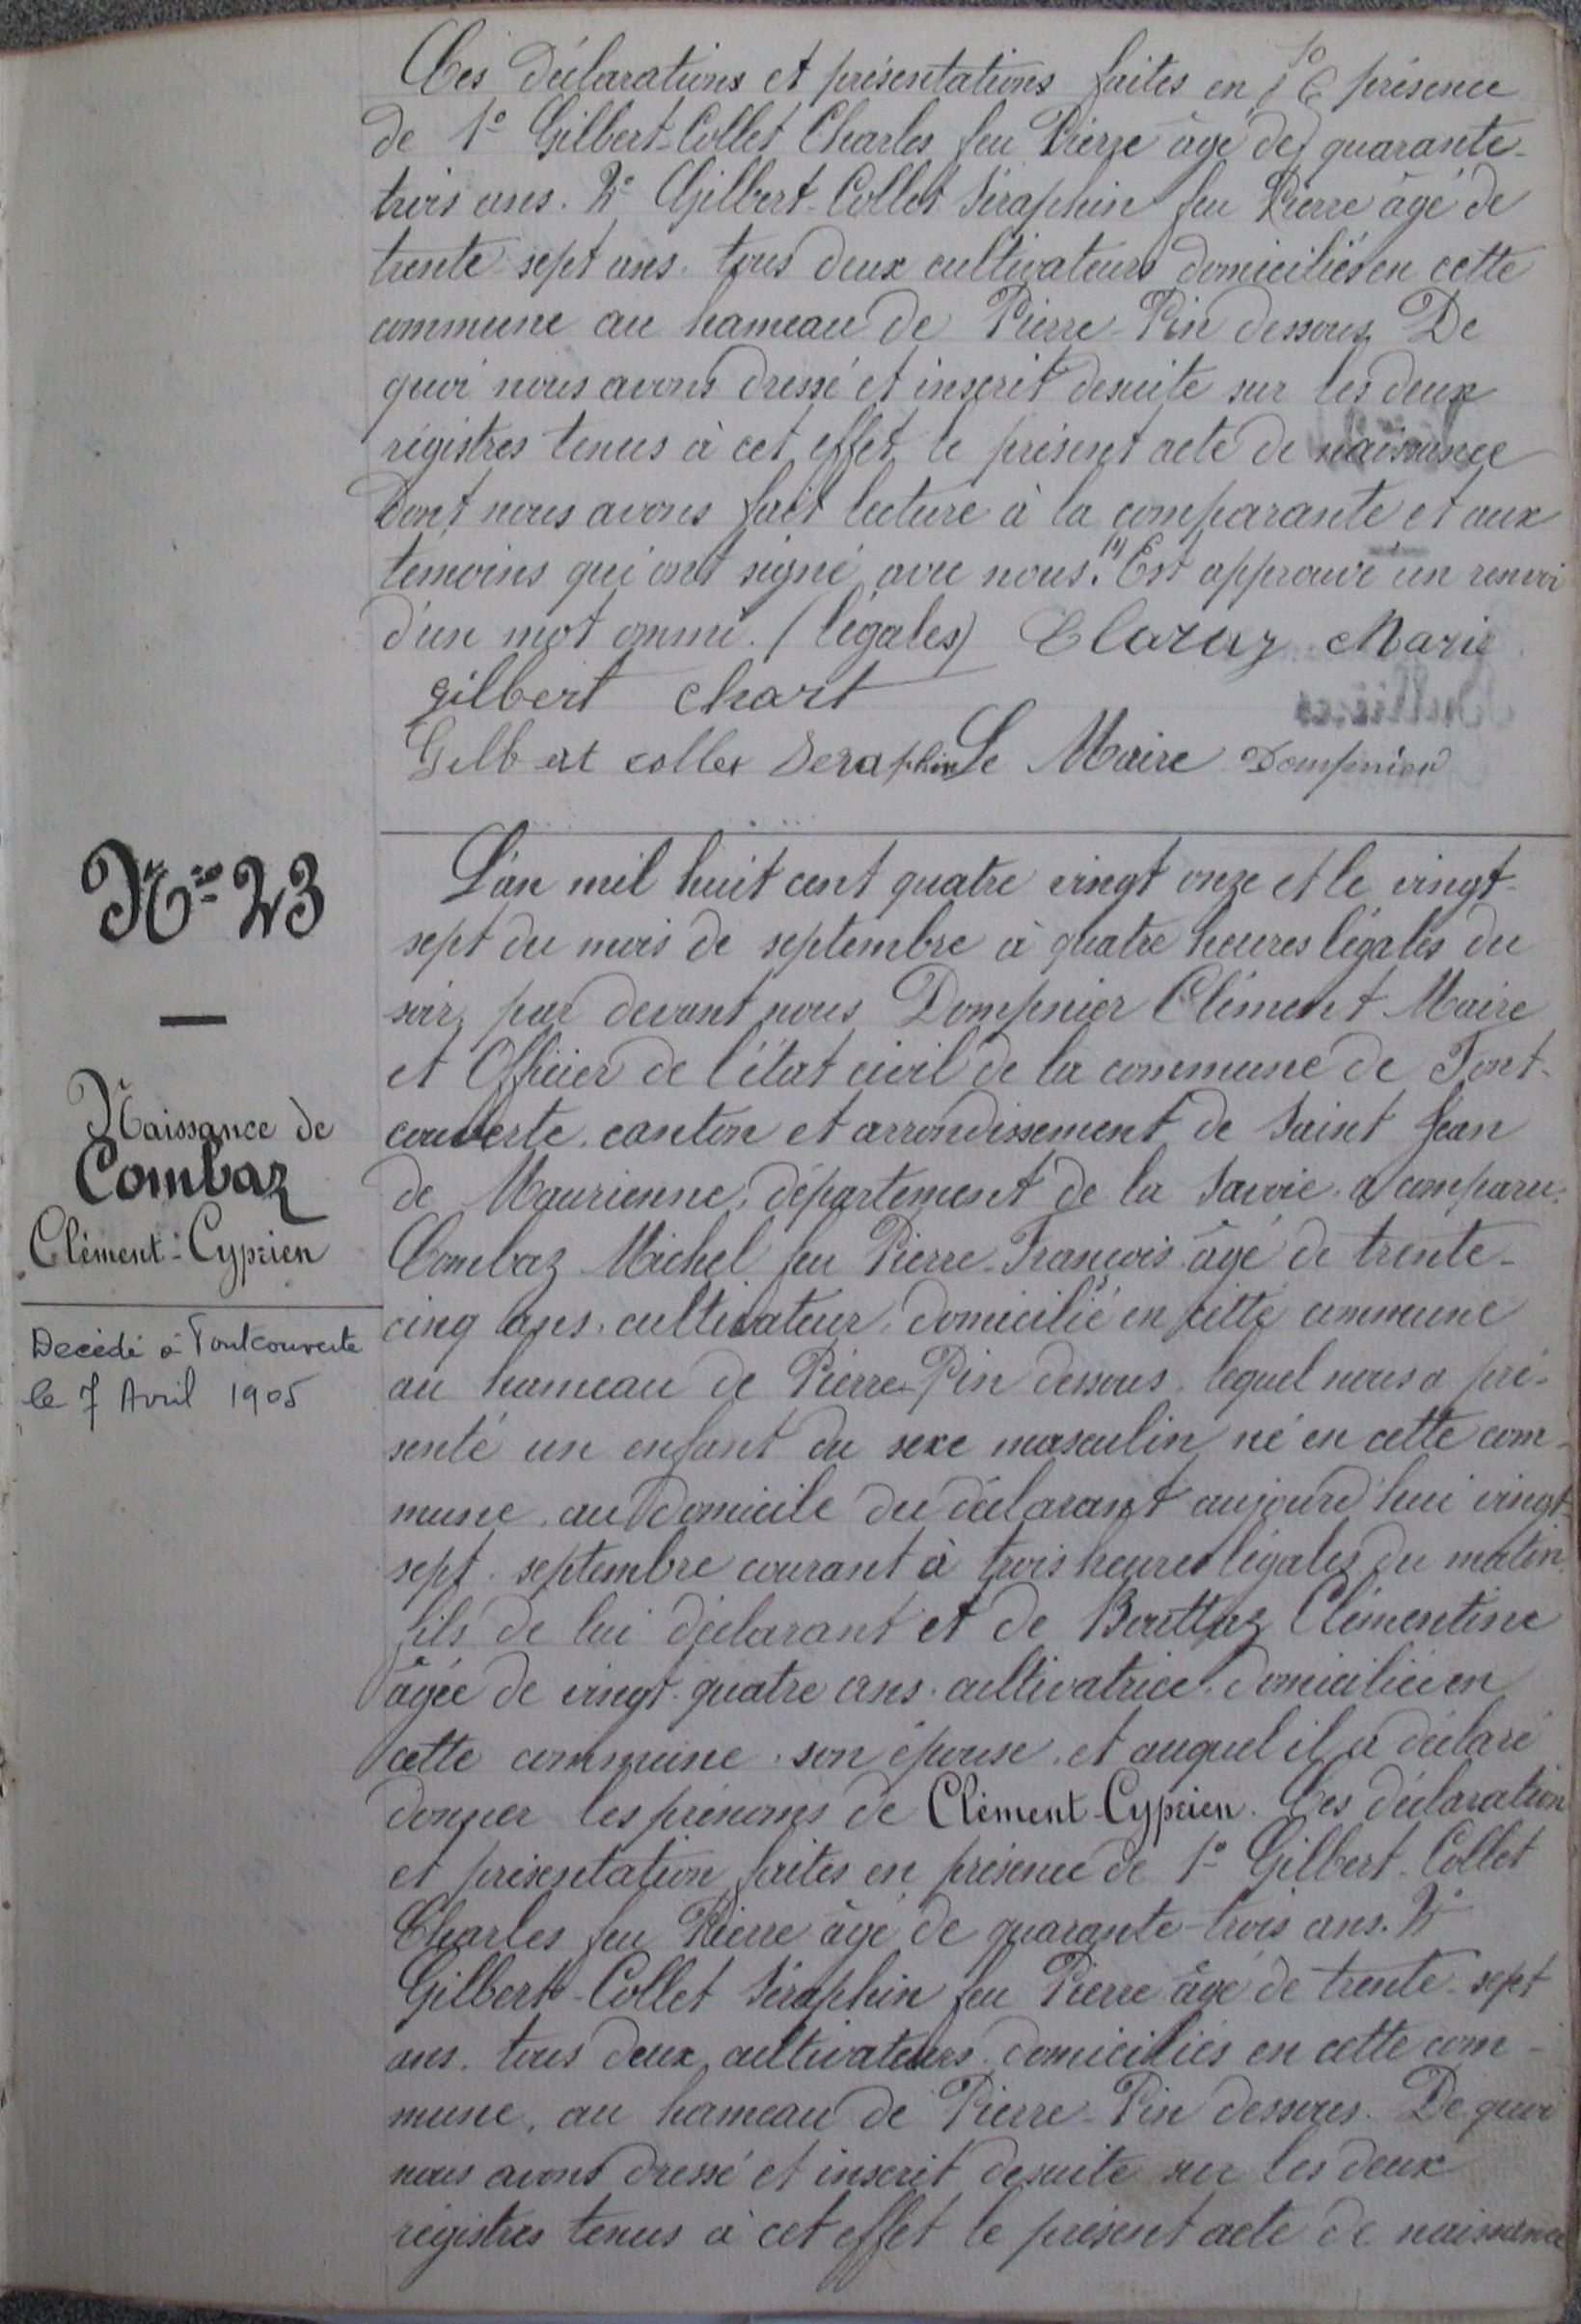 Ces déclarations et présentations faites en présence
de 1° Gilbert-Collet Charles feu Pierre âgé de quarante-
trois ans. 2° Gilbert-Collet Séraphin feu Pierre âgé de
trente sept ans. tous deux cultivateurs domiciliés en cette
commune au hameau de Pierre-Pin dessous. De
quoi nous avons dressé et inscrit desuite sur les deux
régistres tenus à cet effet le présent acte de naissance
Dont nous avons fait lecture à la comparante et aux
témoins qui ont signé avec nous. (1) Est approuvé un renvoi
d'un mot ommi. (légales) Claraz Marie
gilbert Charl
Gilbert collet Seraphin Le Maire Dompnier
N° 23
Naissance de
Combaz
Clément-Cyprien
Décédé à Fontcouverte
le 7 Avril 1905
L'an mil huit cent quatre vingt onze et le vingt-
sept du mois de septembre à quatre heures légales du
soir, par devant nous Dompnier Clément Maire
et Officier de l'état civil de la commune de Font-
couverte, canton et arrondissement de Saint Jean
de Maurienne, département de la Savoie. a comparu.
Combaz Michel feu Pierre-François âgé de trente-
cinq ans. cultivateur, domicilié en cette commune
au hameau de Pierre-Pin dessous, lequel nous a pré-
senté un enfant du sexe masculin né en cette com-
mune, au domicile du déclarant aujourd'hui vingt-
sept septembre courant à trois heures légales du matin
fils de lui déclarant et de Bouttaz Clémentine
âgée de vingt-quatre ans. cultivatrice. domiciliée en
cette commune. son épouse. et auquel il a déclaré
donner les prénoms de Clément-Cyprien. Ces déclaration
et présentation faites en présence de 1° Gilbert-Collet
Charles feu Pierre âgé de quarante-trois ans. 2°
Gilbert-Collet Séraphin feu Pierre âgé de trente-sept
ans. tous deux cultivateurs. domiciliés en cette com-
mune, au hameau de Pierre-Pin dessous. De quoi
nous avons dressé et inscrit desuite sur les deux
régistres tenus à cet effet le présent acte de naissance